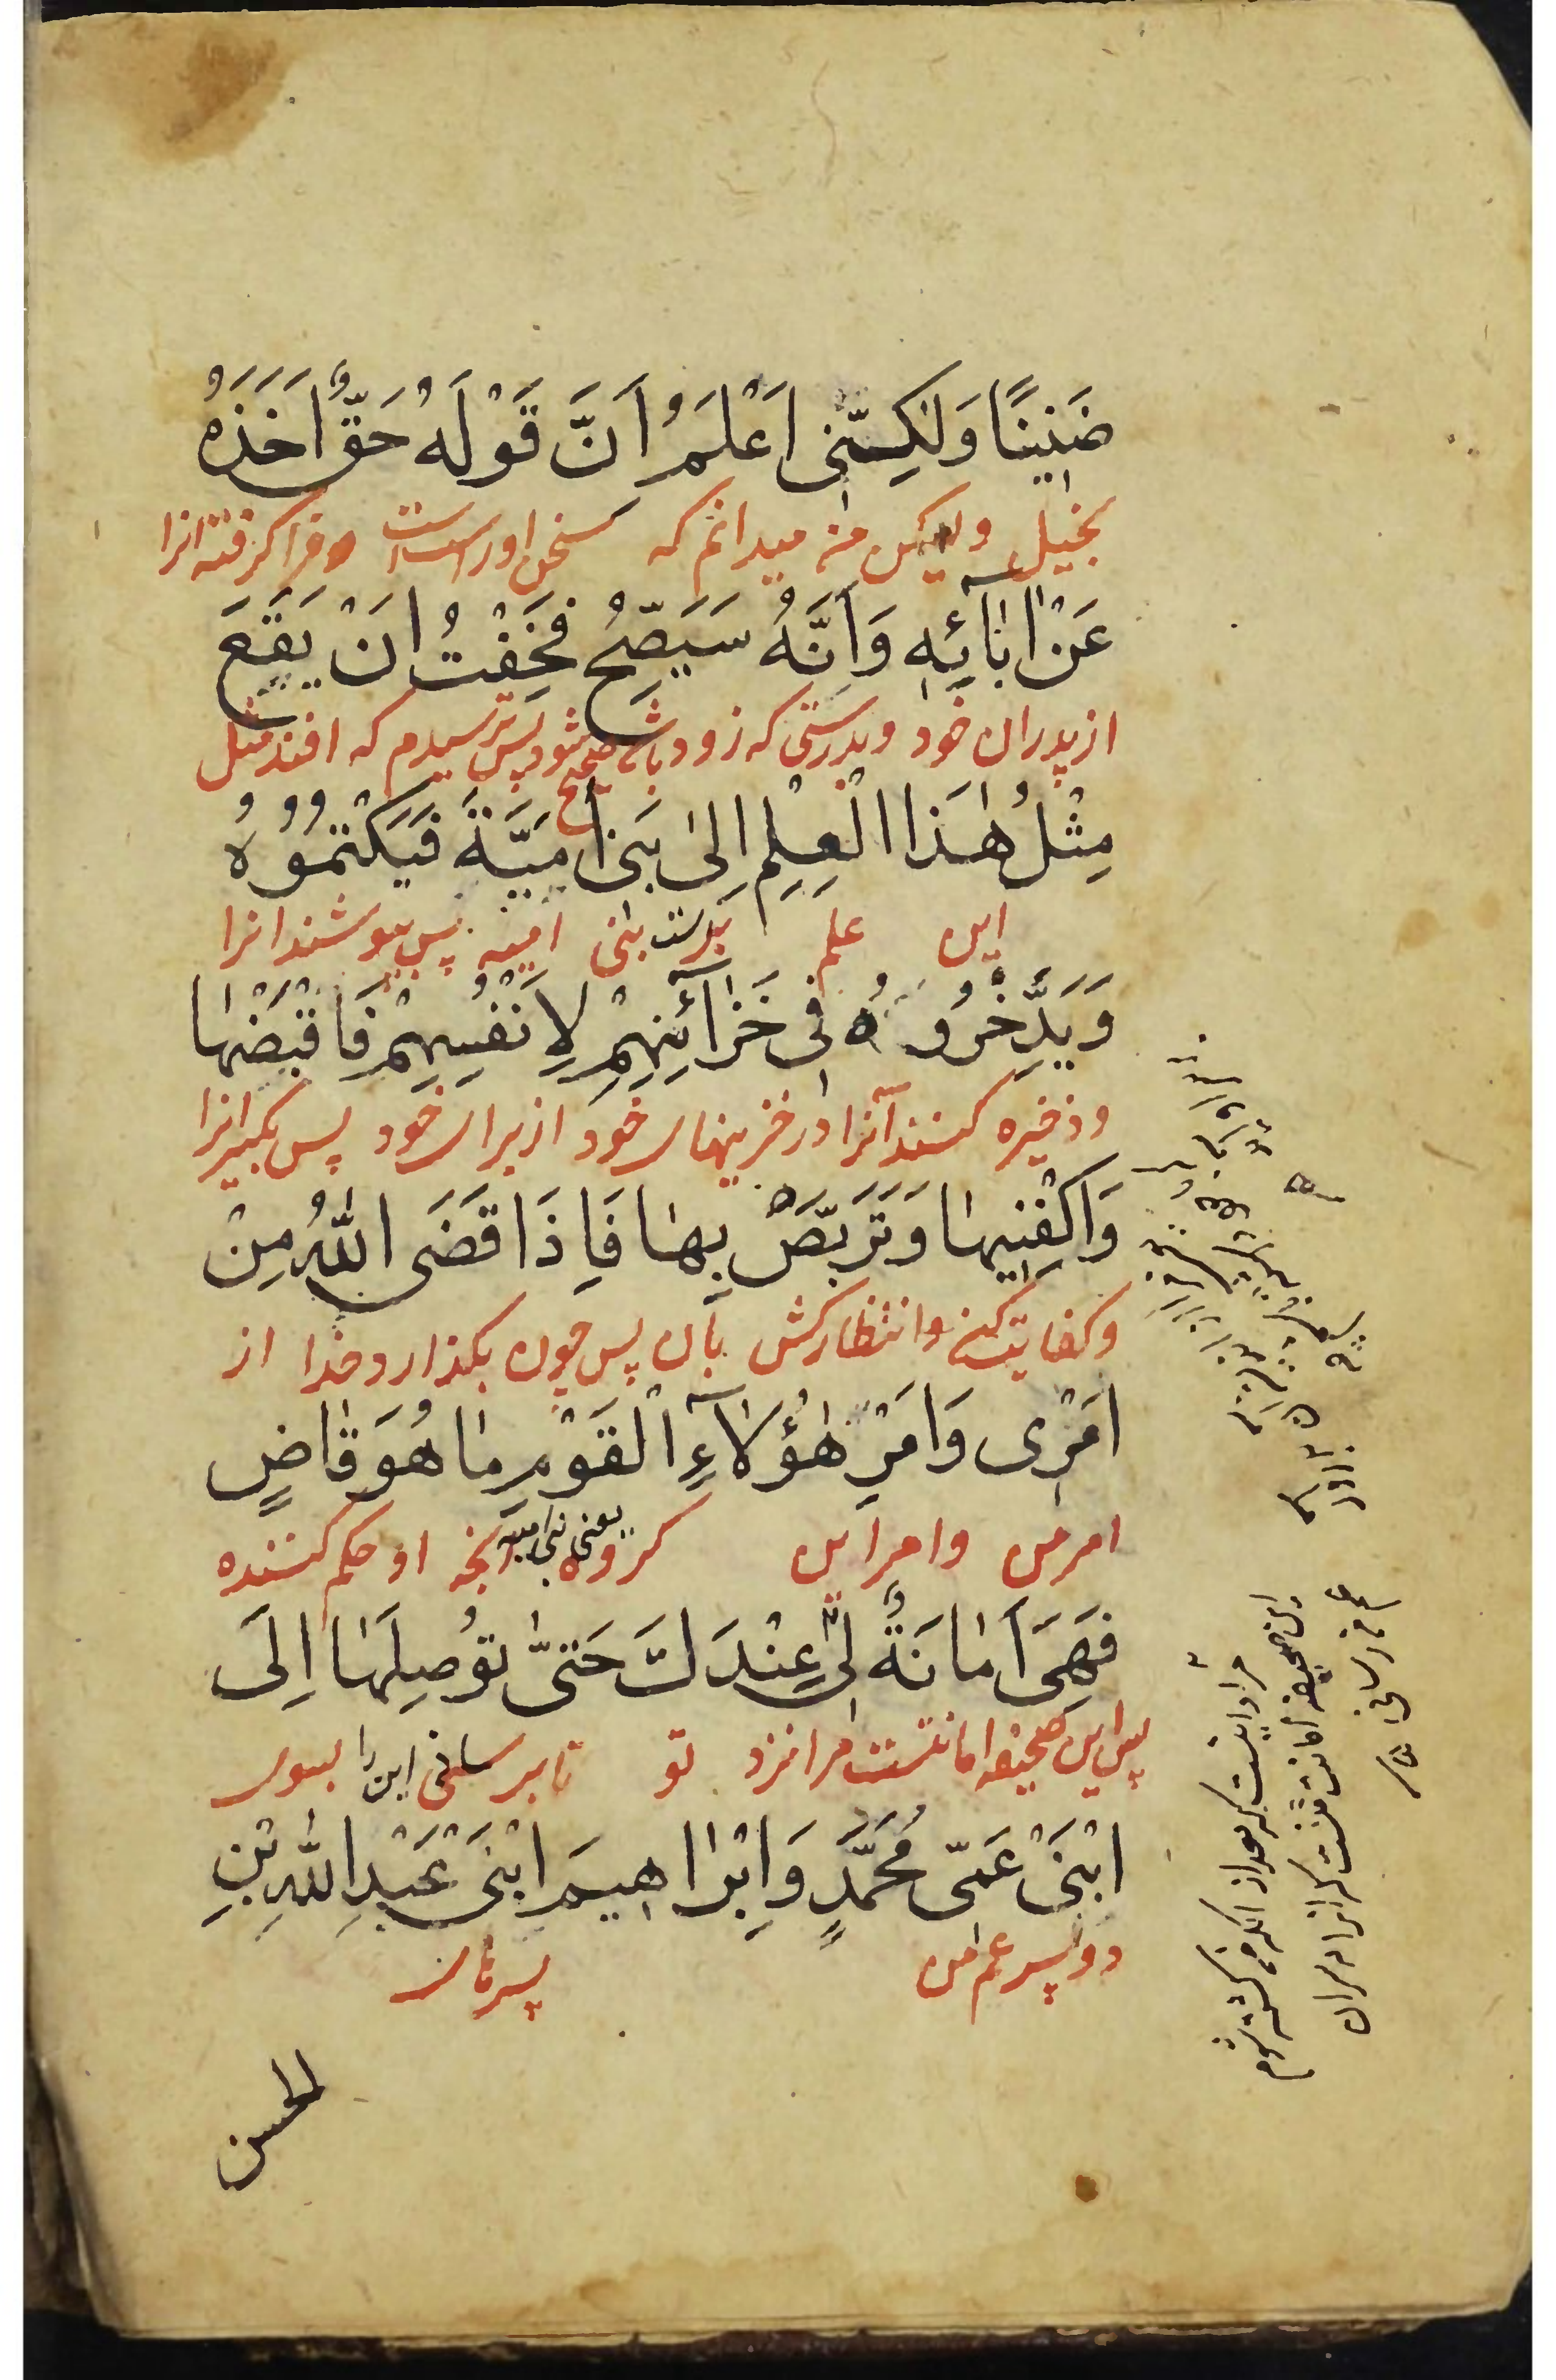 ضَنِينًا وَلٰكِنّنِى اَعْلَمُ اَنَّ قَوْلَهُ حَقٌّ اَخَذَهُ
بخیل ولیکن من میدانم که سخن او راست است و فرا گرفته انرا
عَنْ اٰبٰآئِهِ وَاَنَّهُ سَيَصِحُّ فَخِفْتُ اَنْ يَقَعَ
از پدران خود و بدرستی که زود باشد صحیح شود پس ترسیدم که افتد مثل
مِثْلُ هٰذَا الْعِلْمِ اِلىٰ بَنى اُمَيَّةَ فَيَكْتُمُوُهُ
این علم بدست بنی امیه پس بپوشند انرا
وَيَدَّخِرُوهُ فِى خَزٰآئِنِهِمْ لِاَنْفُسِهِمْ فَاقْبَضْهٰا
و ذخیره کنند آنرا در خزینهای خود از برای خود پس بکیر انرا
وَاكْفِنِيهٰا وَتَرَبَّصْ بِهٰا فَاِذَا قَضَى اللّٰهُ مِنْ
و کفایت کن و انتظار کش بآن پس چون بکذارد خدا از
اَمْرِى وَاَمْرِ هٰؤُلٰآءِ الْقَوْمِ مٰا هُوَ قٰاضٍ
امر من و امر این کروه یعنی بنی امیه آنچه او حکم کننده
فَهِىَ اَمٰانَةٌ لِى عِنْدَكَ حَتىّٰ تُوصِلَهٰا اِلَى
پس این صحیفه امانتست مرا نزد تو تا برسانی این را بسوی
ابْنَىْ عَمّى مُحَمَّدٍ وَاِبْرٰاهِيمَ ابْنَىْ عَبْدِ اللّٰهِ بْنِ
دو پسر عم من پسرهای
الحسن
مراد اینست که بعد از انکه من کشته شوم
این صحیفه امانت منست که انرا